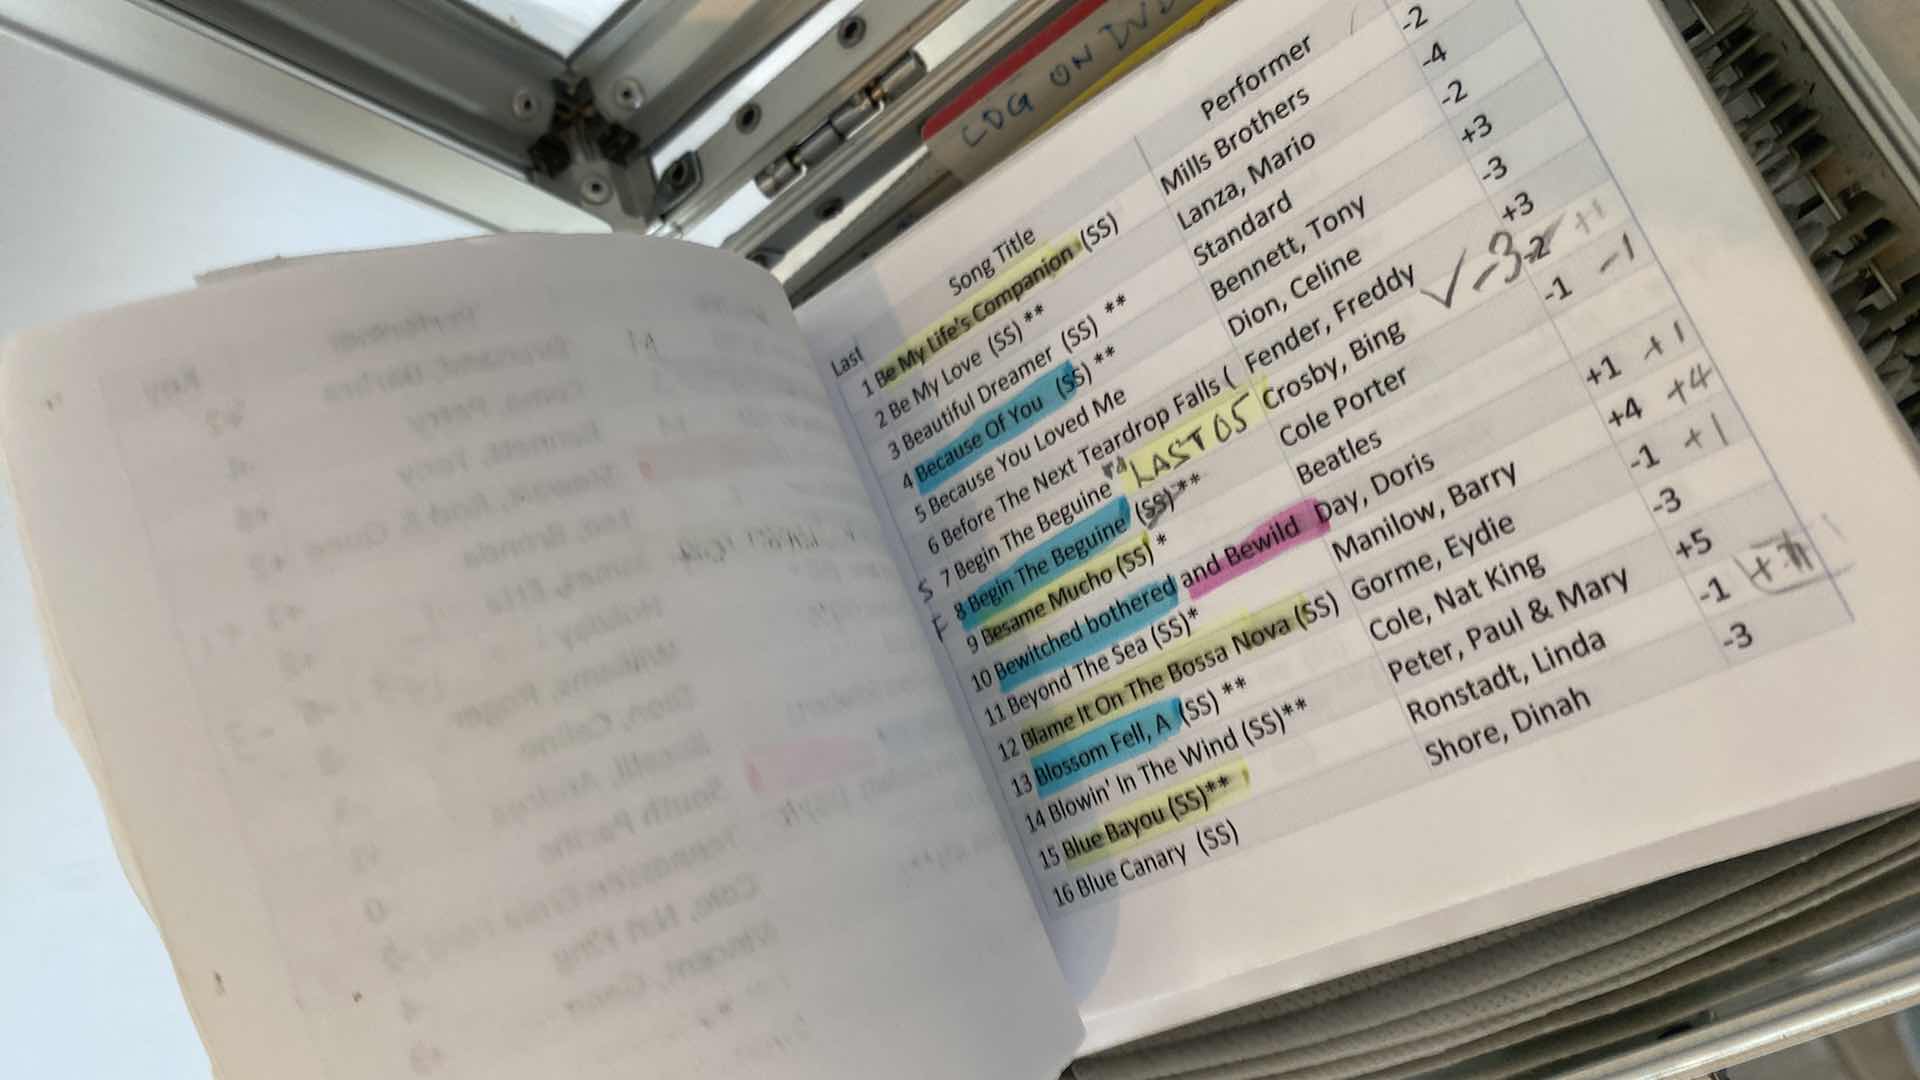 CDG ON DVD
Last Song Title Performer
1 Be My Life's Companion (SS) Mills Brothers -2
2 Be My Love (SS) ** Lanza, Mario -4
3 Beautiful Dreamer (SS) ** Standard -2
4 Because Of You (SS) ** Bennett, Tony +3
5 Because You Loved Me Dion, Celine -3
6 Before The Next Teardrop Falls ( Fender, Freddy +3
S 7 Begin The Beguine LAST 05 Crosby, Bing ✓ -3 -2 +1
F 8 Begin The Beguine (SS) ** Cole Porter -1 -1
9 Besame Mucho (SS) * Beatles
10 Bewitched bothered and Bewild Day, Doris +1 +1
11 Beyond The Sea (SS)* Manilow, Barry +4 +4
12 Blame It On The Bossa Nova (SS) Gorme, Eydie -1 +1
13 Blossom Fell, A (SS) ** Cole, Nat King -3
14 Blowin' In The Wind (SS)** Peter, Paul & Mary +5
15 Blue Bayou (SS)** Ronstadt, Linda -1
16 Blue Canary (SS) Shore, Dinah -3